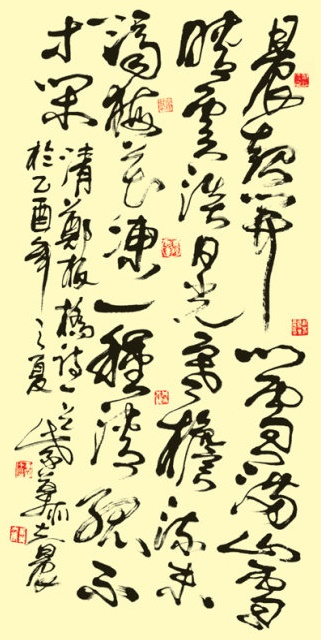 晨起開門雪滿山雪
晴雲淡日光寒檐流未
滴梅花凍一種清孤不
等閑
清鄭板橋詩一首
於乙酉年之夏